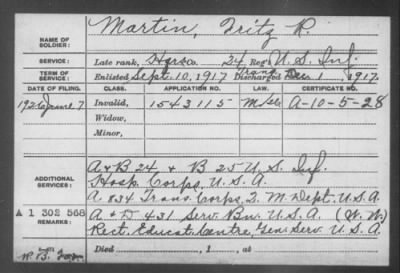 Martin, Fritz R.
NAME OF SOLDIER:
SERVICE: Late rank, 24 Reg't U.S. Inf.
TERM OF SERVICE: Enlisted Sept. 10, 1917 Discharged Trans. Dec 1, 1917.
DATE OF FILING. CLASS. APPLICATION NO. LAW. CERTIFICATE NO.
1926 June 7 Invalid, 1543115 A-10-5-28
Widow,
Minor,
ADDITIONAL SERVICES: A & B 24 & B 25 U.S. Inf.
Hosp. Corps, U.S.A.
A 834 Trans. Corps, 2. M. Dept. U.S.A.
A 1 302 568 A & D 431 Serv. Bn. U.S.A. (W.W.)
REMARKS: Rect. Educat. Centre, Gen. Serv. U.S.A.
Died , 1 , at